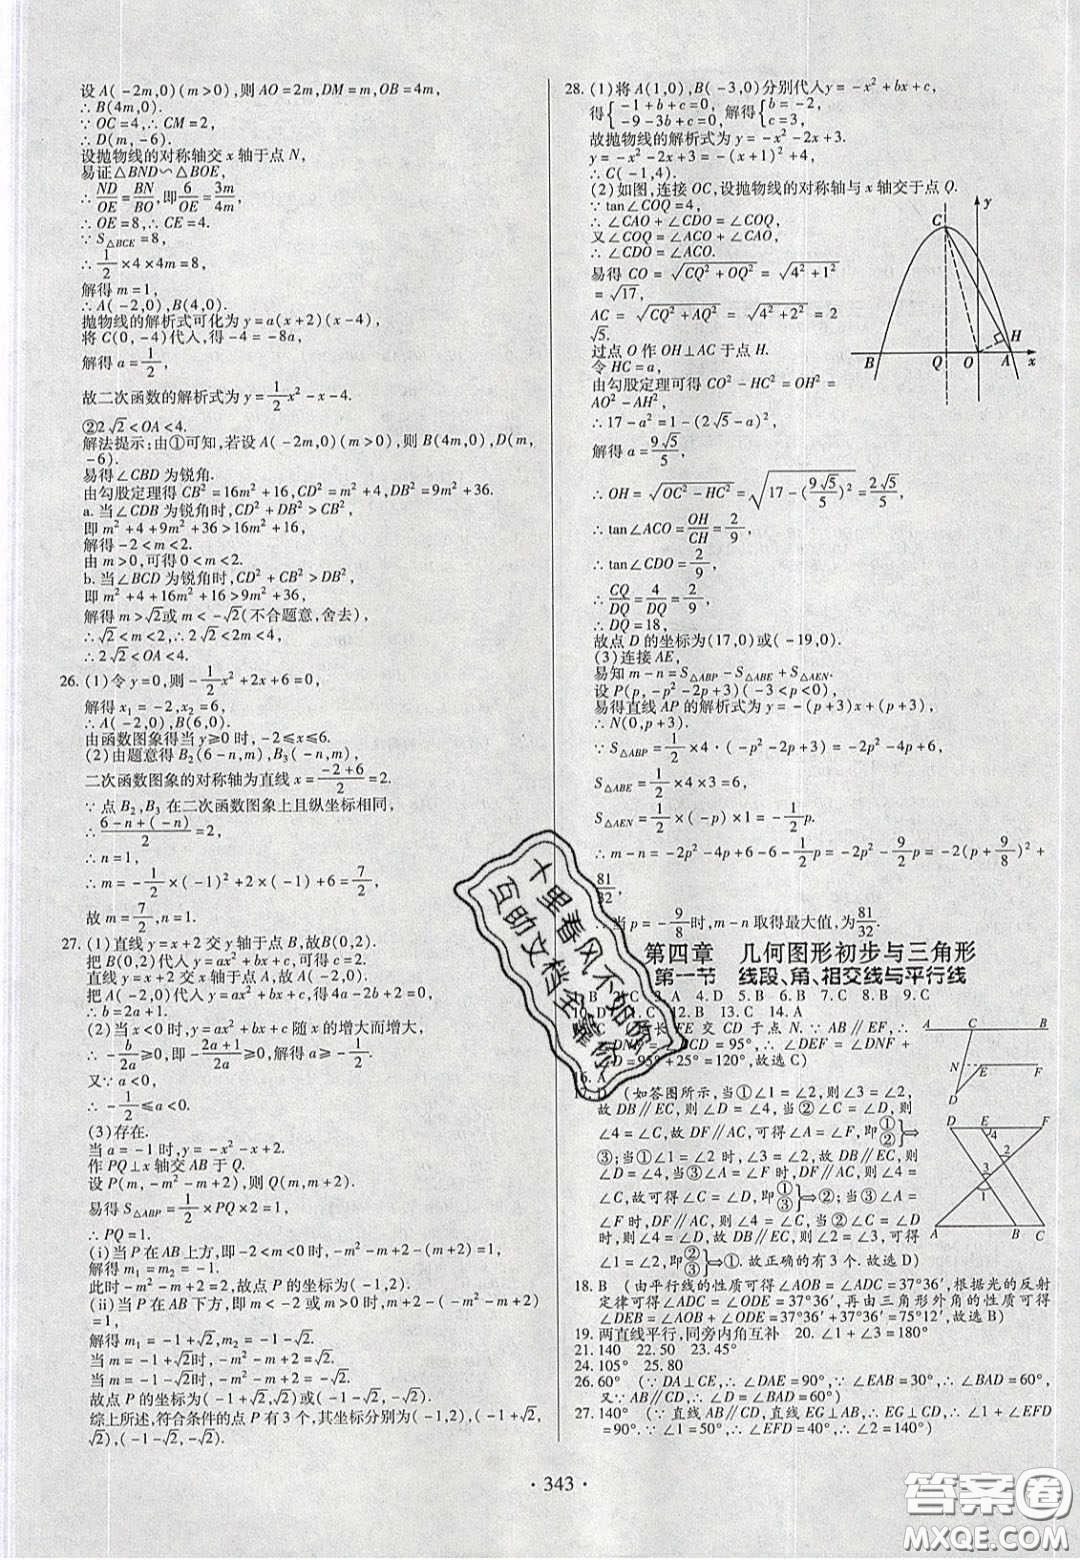 设 A(-2m,0)(m>0),则 AO=2m,DM=m,OB=4m,
∴B(4m,0).
∵OC=4,∴CM=2,
∴D(m,-6).
设抛物线的对称轴交 x 轴于点 N,
易证△BND∽△BOE,
∴ND/OE=BN/BO,即6/OE=3m/4m,
∴OE=8,∴CE=4.
∵S△BCE=8,
∴1/2×4×4m=8,
解得 m=1,
∴A(-2,0),B(4,0).
抛物线的解析式可化为 y=a(x+2)(x-4),
将 C(0,-4)代人,得-4=-8a,
解得 a=1/2,
故二次函数的解析式为 y=1/2x²-x-4.
②2√2<OA<4.
解法提示:由①可知,若设 A(-2m,0)(m>0),则 B(4m,0),D(m,
-6).
易得∠CBD 为锐角.
由勾股定理得 CB²=16m²+16,CD²=m²+4,DB²=9m²+36.
a. 当∠CDB 为锐角时,CD²+DB²>CB²,
即 m²+4+9m²+36>16m²+16,
解得-2<m<2.
由 m>0,可得 0<m<2.
b. 当∠BCD 为锐角时,CD²+CB²>DB²,
即 m²+4+16m²+16>9m²+36,
解得 m>√2或 m<-√2(不合题意,舍去),
∴√2<m<2,∴2√2<2m<4,
∴2√2<OA<4.
26. (1)令 y=0,则-1/2x²+2x+6=0,
解得 x₁=-2,x₂=6,
∴A(-2,0),B(6,0).
由函数图象得当 y≥0 时,-2≤x≤6.
(2)由题意得 B₂(6-n,m),B₃(-n,m),
二次函数图象的对称轴为直线 x=(-2+6)/2=2.
∵点 B₂,B₃ 在二次函数图象上且纵坐标相同,
∴(6-n+(-n))/2=2,
∴n=1,
∴m=-1/2×(-1)²+2×(-1)+6=7/2,
故 m=7/2,n=1.
27. (1)直线 y=x+2 交 y轴于点 B,故B(0,2).
把 B(0,2)代入 y=ax²+bx+c,得 c=2,
直线 y=x+2 交 x 轴于点 A,故A(-2,0).
把 A(-2,0)代入 y=ax²+bx+c,得 4a-2b+2=0,
∴2a=b-1.
(2)当 x<0 时,y=ax²+bx+c 随 x 的增大而增大,
∴-b/2a≥0,即-(2a+1)/2a≥0,解得 a≥-1/2.
又∵a<0,
∴-1/2≤a<0.
(3)存在.
当 a=-1 时,y=-x²-x+2,
作 PQ⊥x 轴交 AB 于 Q.
设 P(m,-m²-m+2),则 Q(m,m+2).
易得 S△ABP=1/2×PQ×2=1,
∴PQ=1.
(i)当 P 在 AB 上方,即-2<m<0 时,-m²-m+2-(m+2)=1,
解得 m₁=m₂=-1.
此时-m²-m+2=2,故点 P 的坐标为(-1,2).
(ii)当 P 在 AB 下方,即 m<-2 或 m>0 时,m+2-(-m²-m+2)
=1,
解得 m₁=-1+√2,m₂=-1-√2.
当 m=-1+√2时,-m²-m+2=√2,
当 m=-1-√2时,-m²-m+2=-√2,
故点 P 的坐标为(-1+√2,√2)或(-1-√2,-√2).
综上所述,符合条件的点 P 有 3 个,其坐标分别为(-1,2),(-1+√2,
√2),(-1-√2,-√2).
28. (1)将 A(1,0),B(-3,0)分别代人y=-x²+bx+c,
得{-1+b+c=0, -9-3b+c=0,解得{b=-2, c=3,
故抛物线的解析式为 y=-x²-2x+3.
y=-x²-2x+3=-(x+1)²+4,
∴C(-1,4).
(2)如图,连接 OC,设抛物线的对称轴与 x 轴交于点 Q.
∵tan∠COQ=4,
∴∠CAO+∠CDO=∠COQ,
又∠COQ=∠ACO+∠CAO,
∴∠CDO=∠ACO.
易得 CO=√(CQ²+OQ²)=√(4²+1²)
=√17,
AC=√(CQ²+AQ²)=√(4²+2²)=2
√5.
过点 O 作 OH⊥AC 于点 H.
令 HC=a,
由勾股定理可得 CO²-HC²=OH²=
AO²-AH²,
∴17-a²=1-(2√5-a)²,
解得 a=9√5/5,
∴OH=√(OC²-HC²)=√(17-(9√5/5)²)=2√5/5,
∴tan∠ACO=OH/CH=2/9,
∴tan∠CDO=2/9,
∴CQ/DQ=4/DQ=2/9,
∴DQ=18,
故点 D 的坐标为(17,0)或(-19,0).
(3)连接 AE,
易知 m-n=S△ABP-S△ABE+S△AEN.
设 P(p,-p²-2p+3)(-3<p<0),
易得直线 AP 的解析式为 y=-(p+3)x+(p+3),
∴N(0,p+3).
∵S△ABP=1/2×4·(-p²-2p+3)=-2p²-4p+6,
S△ABE=1/2×4×3=6,
S△AEN=1/2×(-p)×1=-1/2p.
∴m-n=-2p²-4p-1/2p=-2p²-9/2p=-2(p+9/8)²+
81/32,
当 p=-9/8时,m-n 取得最大值,为81/32.
第四章 几何图形初步与三角形
第一节 线段、角、相交线与平行线
B 3. A 4. D 5. B 6. C 7. C 8. B 9. C
10. D 12. B 13. C 14. A
C 长 FE 交 CD 于点 N. ∵AB∥EF,∴
=95°,∴∠DEF=∠DNF+
∠D=95°+25°=120°,故选 C)
16. A
17. D (如答图所示,当①∠1=∠2,则∠3=∠2,
故 DB∥EC,则∠D=∠4,当②∠C=∠D,则
∠4=∠C,故 DF∥AC,可得∠A=∠F,即①②}⇒
③;当①∠1=∠2 时,∠3=∠2,故 DB∥EC,则
∠D=∠4,当③∠A=∠F 时,DF∥AC,则∠4=
∠C,故可得∠C=∠D,即①③}⇒②;当③∠A=
∠F 时,DF∥AC,则∠4=∠C,当②∠C=∠D
时,则∠4=∠D,故 DB∥EC,则∠2=∠3,可得
∠1=∠2,即②③}⇒①. 故正确的有 3 个. 故选 D)
18. B (由平行线的性质可得∠AOB=∠ADC=37°36′,根据光的反射
定律可得∠ADC=∠ODE=37°36′,再由三角形外角的性质可得
∠DEB=∠AOB+∠ODE=37°36′+37°36′=75°12′,故选 B)
19. 两直线平行,同旁内角互补 20. ∠1+∠3=180°
21. 140 22. 50 23. 45°
24. 105° 25. 80
26. 60° (∵DA⊥CE,∴∠DAE=90°,∵∠EAB=30°,∴∠BAD=60°,
又∵AB∥CD,∴∠D=∠BAD=60°)
27. 140° (∵直线 AB∥CD,直线 EG⊥AB,∴EG⊥CD,∴∠FED
=90°. ∵∠1=50°,∴∠EFD=40°,∴∠2=140°)
y
C
H
B Q O A x
A C B
N E F
D
D E F
4
2
3
1
A B C
十里春风不如你
互助文档全靠你
· 343 ·
答案圈
MXQE.COM